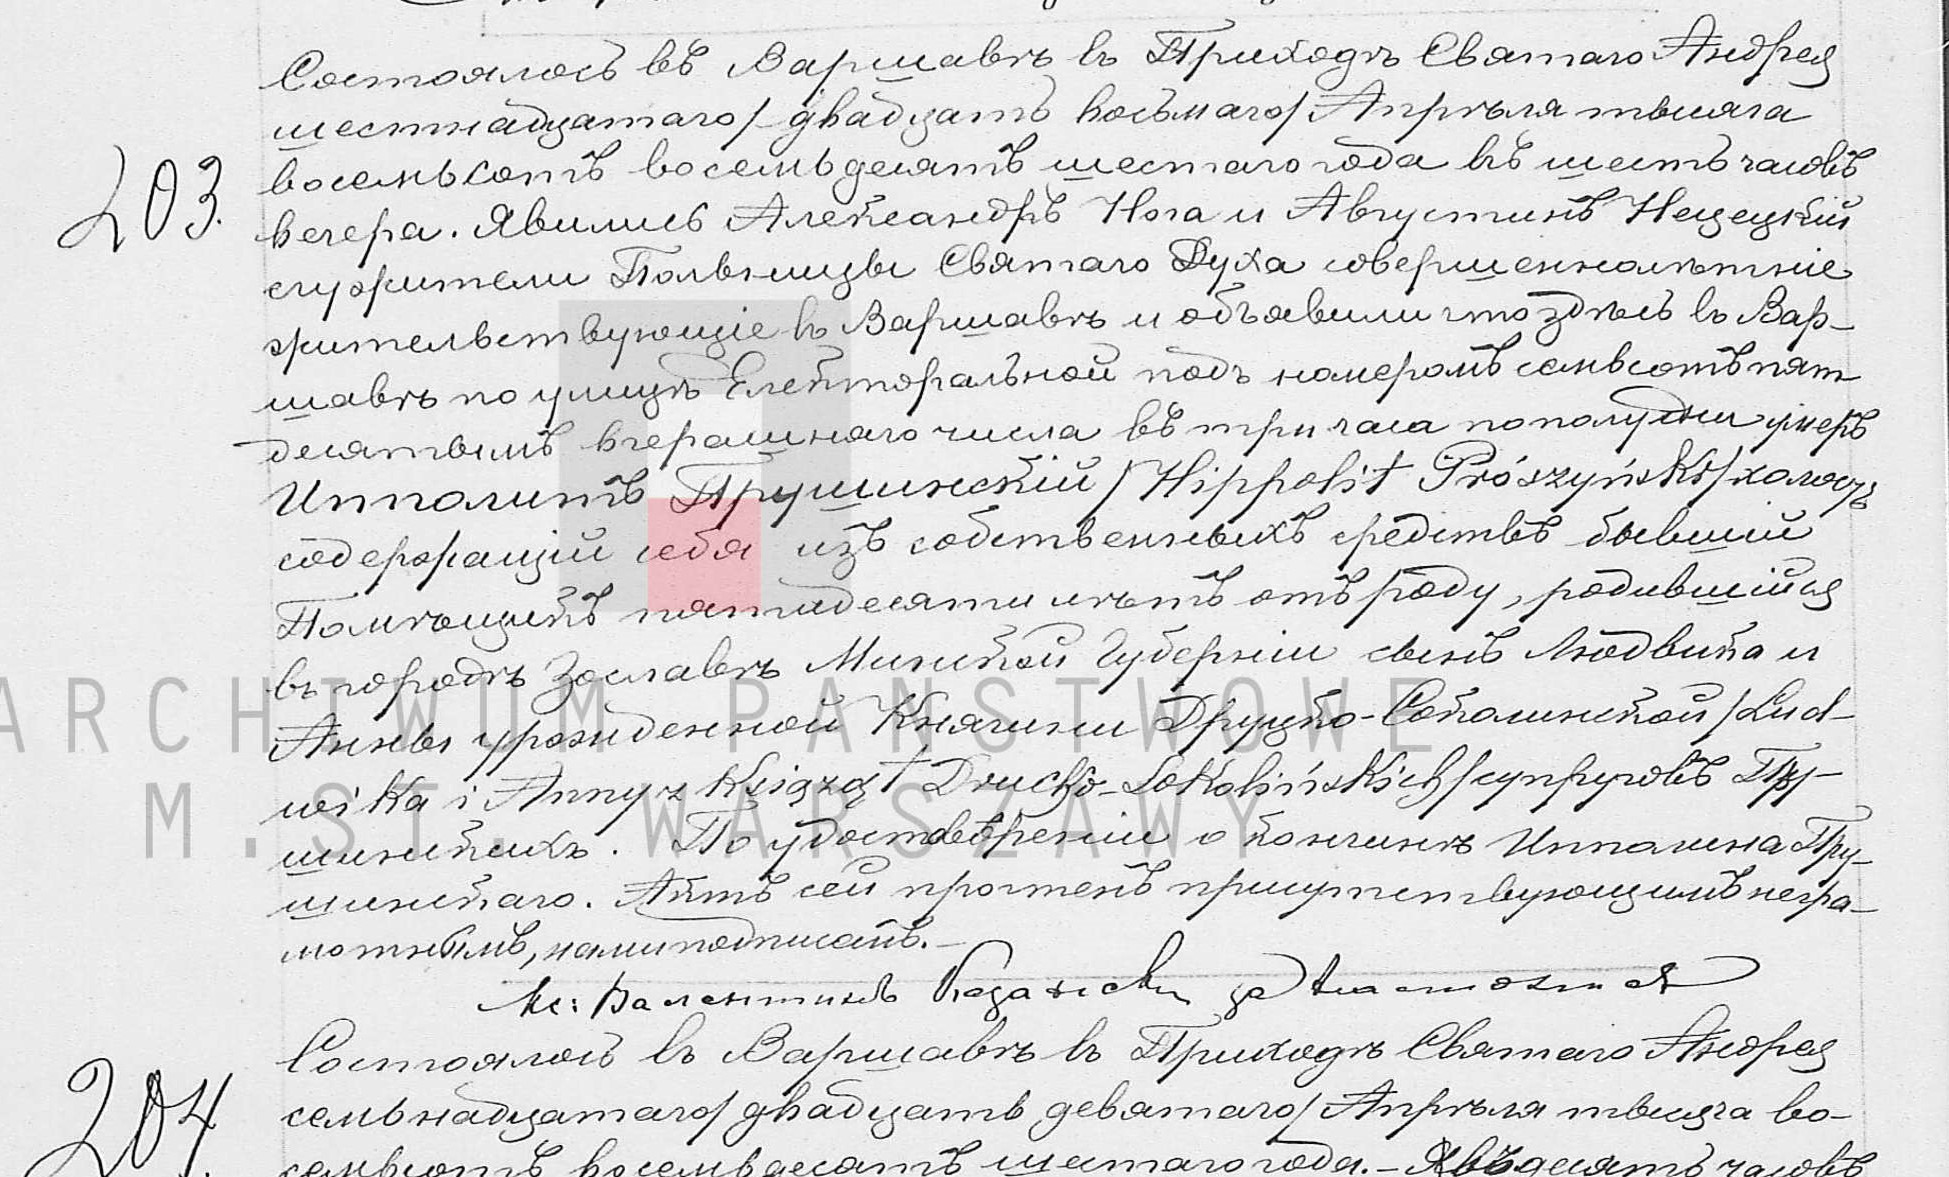 203.
Состоялось въ Варшавѣ въ Приходѣ Святаго Андрея
шестнадцатаго/двадцать восьмаго/Апрѣля тысяча
восемьсотъ восемьдесятъ шестаго года въ шесть часовъ
вечера. Явились Александръ Нога и Августинъ Нецецкій
служители Больницы Святаго Духа совершеннолѣтніе
жительствующіе въ Варшавѣ и объявили что здѣсь въ Вар-
шавѣ по улицѣ Електоральной подъ номеромъ семьсотъ пять
десятымъ вчерашняго числа въ три часа пополудни умеръ
Ипполитъ Прушинскій/Hippolit Prószyński/холостъ
содержащій себя изъ собственныхъ средствъ бывшій
Помѣщикъ пятидесяти лѣтъ отъ роду, родившійся
въ городѣ Заславѣ Минской Губерніи сынъ Людвика и
Анны урожденной Княгини Друцко-Соколинской/Lud-
wika i Anny z Książąt Drucko-Sokolińskich/супруговъ Пру-
шинскихъ. По удостовѣреніи о кончинѣ Ипполита Пру-
шинскаго. Актъ сей прочтенъ присутствующимъ негра-
мотнымъ, нами подписанъ.-
Кс: Валентинъ за Настоятеля
204.
Состоялось въ Варшавѣ въ Приходѣ Святаго Андрея
семьнадцатаго/двадцать девятаго/Апрѣля тысяча во-
семьсотъ восемьдесятъ шестаго года.- Въ десять часовъ
ARCHIWUM PAŃSTWOWE
M.ST. WARSZAWY